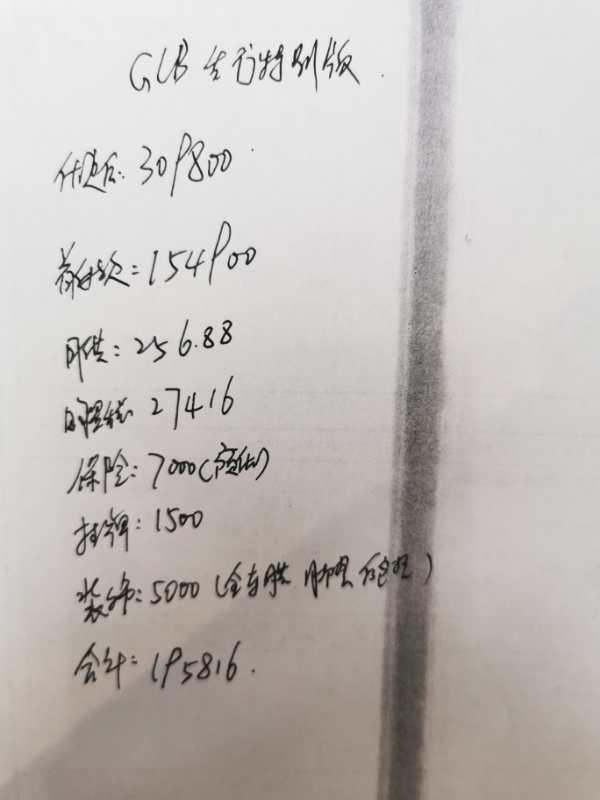 GLB 先行特别版
309800
首付款:154900
月供:256.88
购置税 27416
保险:7000(预估)
挂牌:1500
装饰:5000(全车膜 脚垫)
合计:195816.